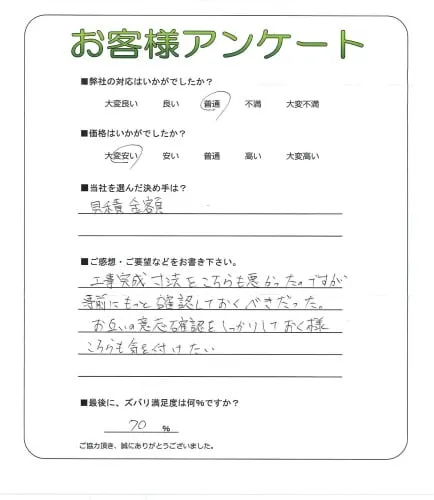 お客様アンケート
■弊社の対応はいかがでしたか？
大変良い　良い　普通　不満　大変不満
■価格はいかがでしたか？
大変安い　安い　普通　高い　大変高い
■当社を選んだ決め手は？
見積金額
■ご感想・ご要望などをお書き下さい。
工事完成寸法をこちらも悪かったのですが
事前にもっと確認しておくべきだった。
お互いの意志確認をしっかりしておく様
こちらも気を付けたい
■最後に、ズバリ満足度は何%ですか？
70 %
ご協力頂き、誠にありがとうございました。